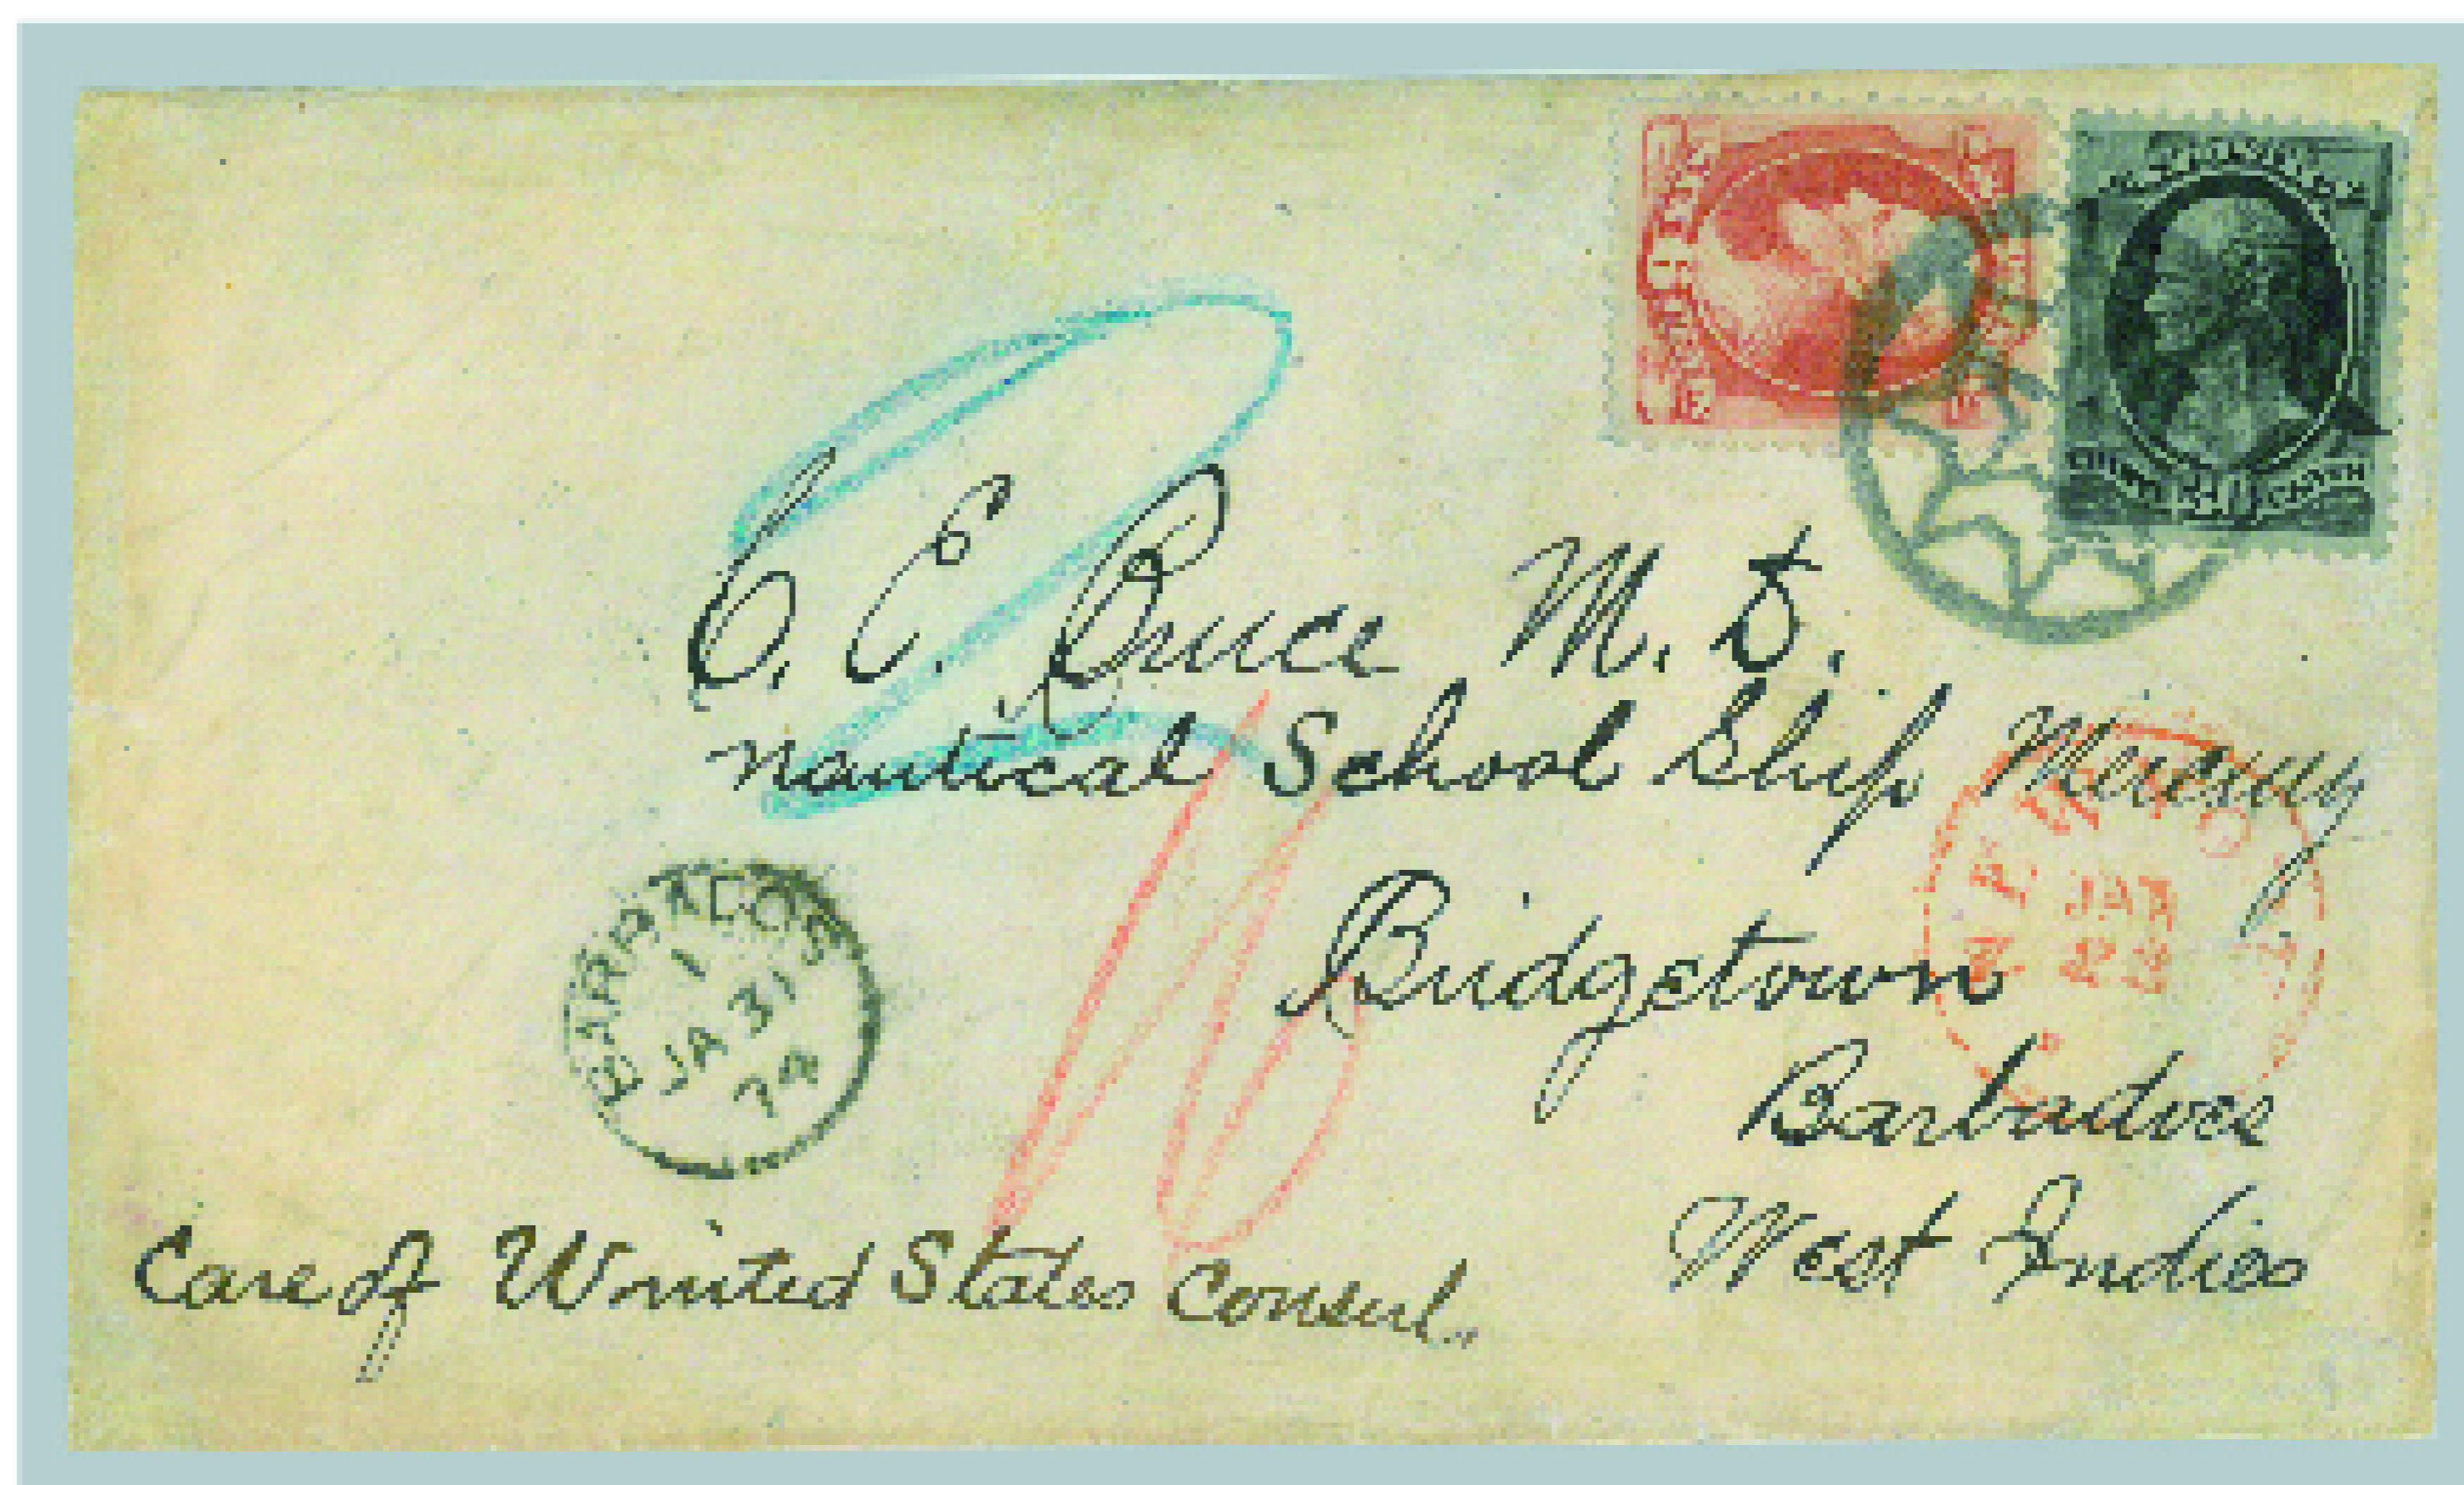 O. E. Bruce M. D.
Nautical School Ship Mercury
Bridgetown
Barbadoes
West Indies
Care of United States Consul.
BARBADOS
1
JA 31
74
NEW YO
JAN
22